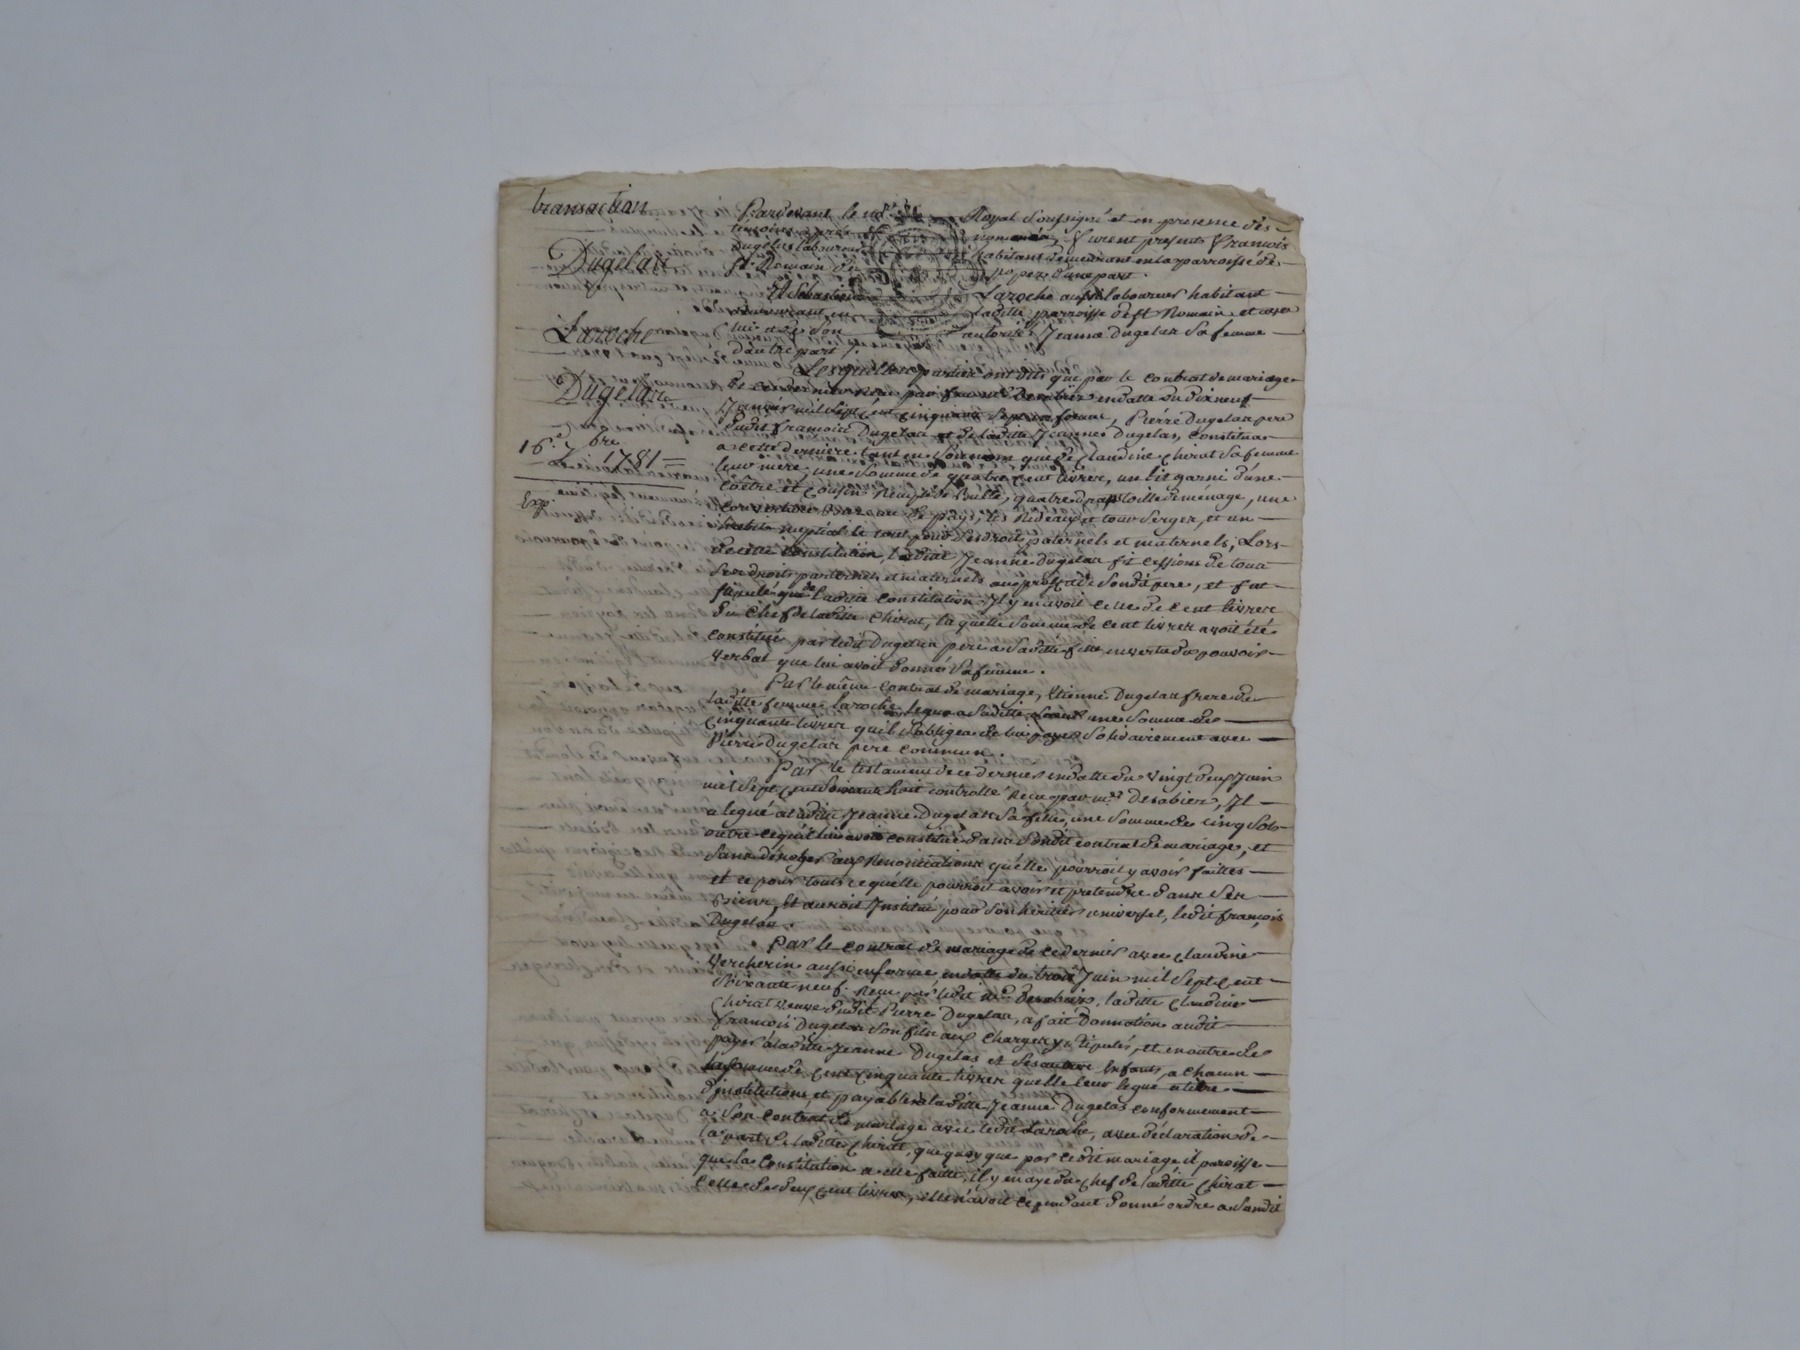 transaction
Dugelas
Laroche
Dugelas
16.e 7bre
1781
Exp.
Pardevant le no.re Royal soussigné et en presence des
temoins nommés, furent presents François
Dugelas laboureur habitant demeurant en la parroisse de
St. Romain de popez d'une part.
Et Sebastien Laroche aussi laboureur habitant
demeurant en laditte parroisse de St Romain et avec
lui de son autorité Jeanne Dugelas sa femme
d'autre part.
Lesquelles parties ont dit que par le contrat de mariage
de ces derniers reçu par feu me Desabiez en datte du dixneuf
Janvier mil sept cent cinquante sept en forme, Pierre Dugelas pere
dudit francois Dugelas et de laditte Jeanne Dugelas, constitua
a cette derniere tant en son nom que de Claudine Chirat sa femme
leur mere, une somme de quatre cent livres, un lit garni d'une
coëtre et cousin remplis de bulle, quatre draps toille de menage, une
couverture du pays, les rideaux et tour serge, et un
habit nuptial le tout pour ses droits paternels et maternels; Lors
de cette constitution, laditte Jeanne Dugelas fit cession de tous
ses droits paternels et maternels au proffit de sondit pere, et fut
stipulé que de laditte constitution Il y en avoit celle de cent livres
du chef de laditte Chirat, laquelle somme de cent livres avoit été
constitué par ledit Dugelas pere a saditte fille en vertu du pouvoir
verbal que lui avoit donné sa femme.
Par le même contrat de mariage, Etienne Dugelas frere de
laditte femme Laroche legua a saditte soeur une somme de
cinquante livres qu'il s'obligea de lui payer solidairement avec
Pierre Dugelas pere commun.
Par le testament de ce dernier en datte du vingt deux Juin
mil sept cent soixante huit controllé reçu par me Desabiez, Il
a legué a laditte Jeanne Dugelas sa fille, une somme de cinq sols
outre ce qu'il lui avoit constitué dans sondit contrat de mariage, et
sans déroger aux renonciations qu'elle pourroit y avoir faittes
et ce pour tout ce qu'elle pourroit avoir et pretendre dans ses
biens, Et auroit Institué pour son heritier universel, ledit françois
Dugelas.
Par le contrat de mariage de ce dernier avec Claudine
Vercherin aussi en forme en datte du trois Juin mil sept cent
soixante neuf. reçu par ledit me Desabiez, laditte Claudine
Chirat veuve dudit Pierre Dugelas, a fait donnation audit
francois Dugelas son fils aux charges y stipulés, et en outre de
payer a laditte Jeanne Dugelas et ses autres Enfants, a chacun
la somme de cent cinquante livres qu'elle leur legue a titre
d'institution, et payable a laditte Jeanne Dugelas conformement
a son contrat de mariage avec ledit Laroche, avec déclaration de
la part de laditte Chirat, que quoy que par cedit mariage il paroisse
que la constitution a elle faitte, il y en aye du chef de laditte Chirat
celle de deux cent livres, elle n'avoit cependant donné ordre a sondit